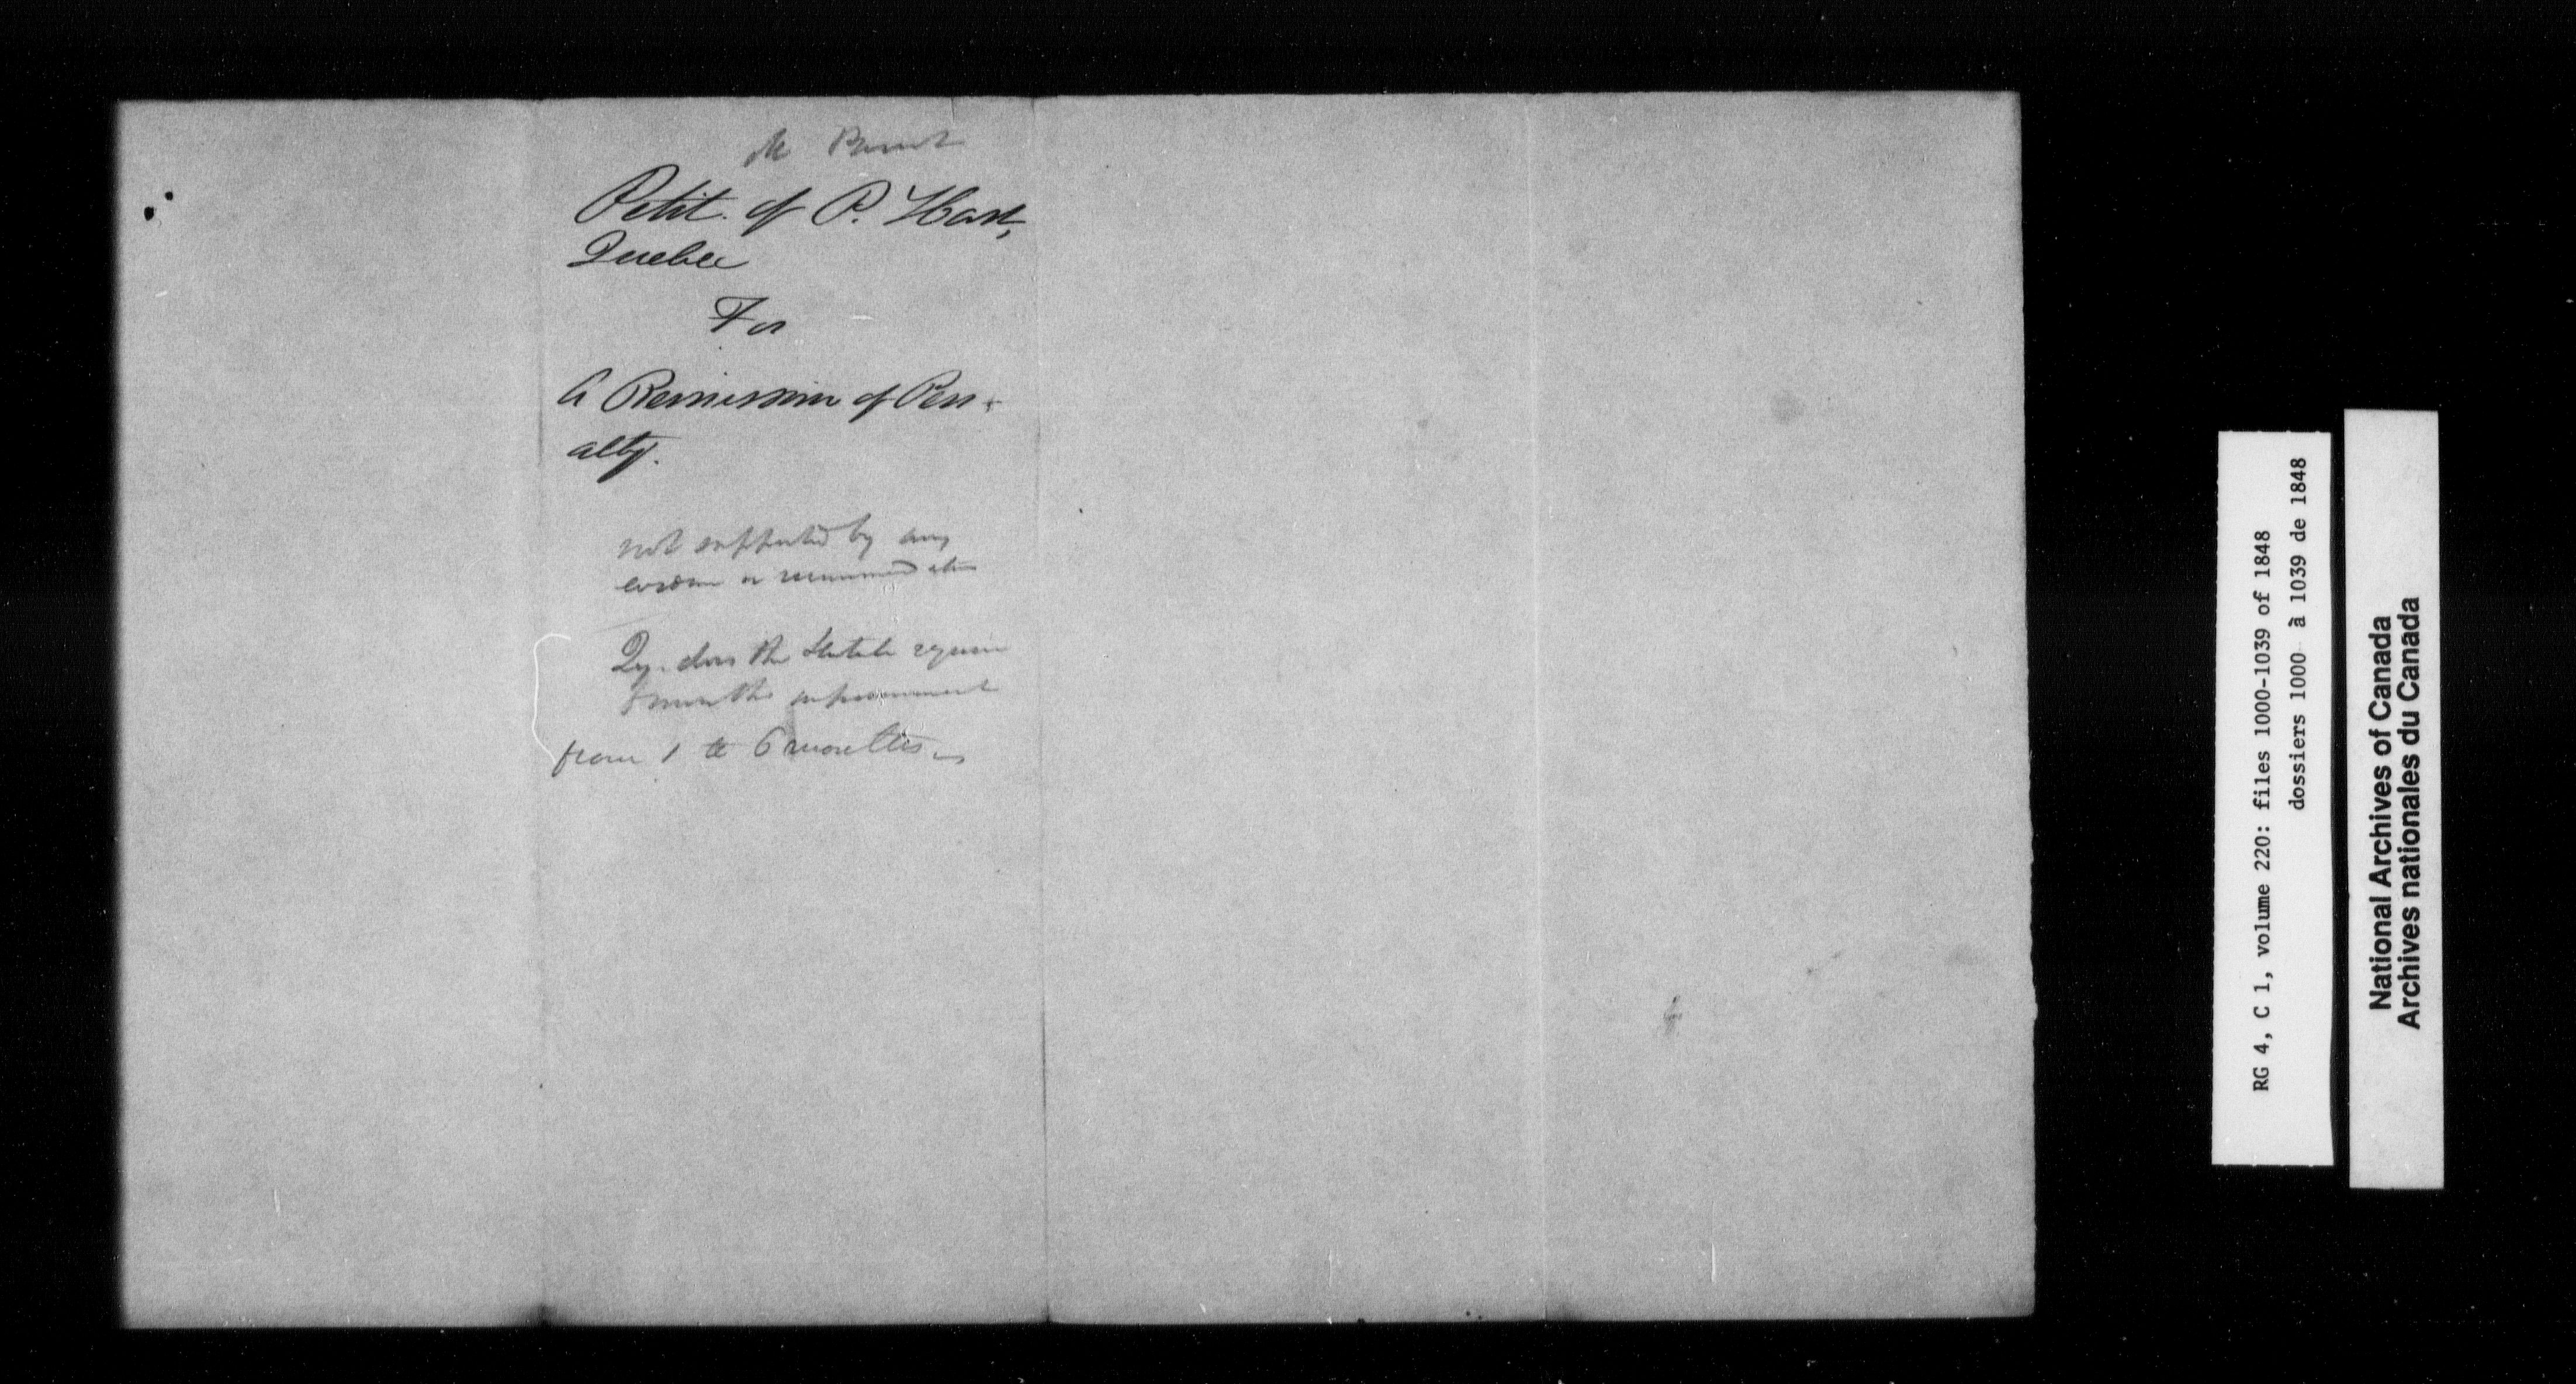 Petit. of P. Hart,
Quebec
For
A Remission of Pen-
alty.
not supported by any
or recommendation
Qy. does the Statute require
months imprisonment
from 1 to 6 months
RG 4, C 1, volume 220: files 1000-1039 of 1848
dossiers 1000 à 1039 de 1848
National Archives of Canada
Archives nationales du Canada